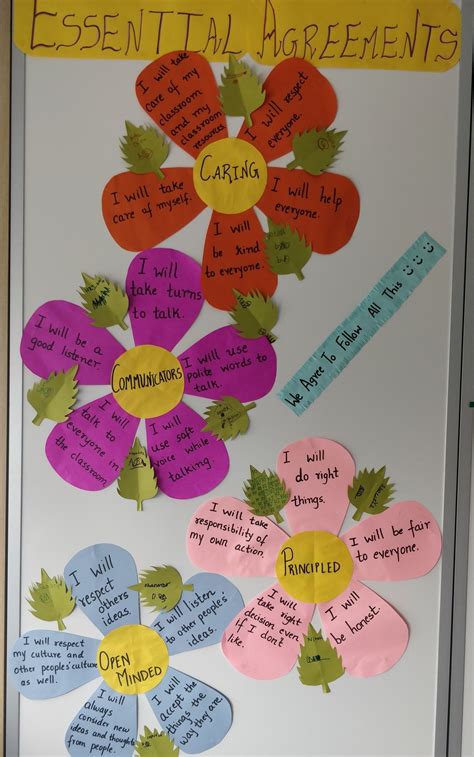 ESSENTIAL AGREEMENTS
I will take
care of my
classroom
and my
classroom
resources
I will respect
everyone.
CARING
I will take
care of myself.
I will help
everyone.
I will
be kind
to everyone.
I will
take turns
to talk.
I will be a
good listener.
I will use
polite words to
talk.
COMMUNICATORS
I will
talk to
everyone in
the classroom
I will
use soft
voice while
talking.
We Agree To Follow All This
I will
do right
things.
I will take
responsibility of
my own action.
I will be fair
to everyone.
PRINCIPLED
I will
take right
decision even
if I don't
like.
I will
be honest.
I will
respect
others
ideas.
I will listen
to other people's
ideas.
I will respect
my culture and
other peoples' culture
as well.
OPEN
MINDED
I will
always
consider new
ideas and thoughts
from people.
I will
accept the
things the
way they are.